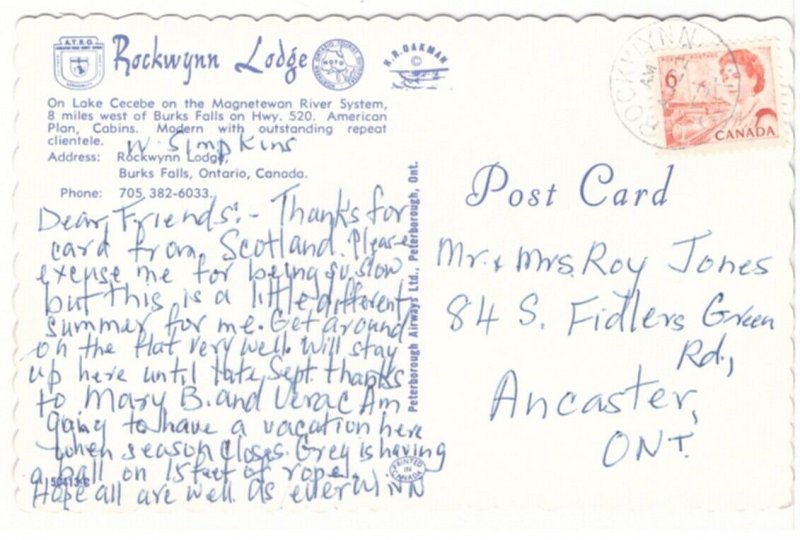 A.T.R.O.
Rockwynn Lodge
H.R. OAKMAN
©
On Lake Cecebe on the Magnetewan River System,
8 miles west of Burks Falls on Hwy. 520. American
Plan, Cabins. Modern with outstanding repeat
clientele.
W. Simpkins
Address: Rockwynn Lodge,
Burks Falls, Ontario, Canada.
Phone: 705 382-6033.
Dear Friends:- Thanks for
card from Scotland. Please
excuse me for being so slow
but this is a little different
summer for me. Get around
on the flat very well. Will stay
up here until late Sept. thanks
to Mary B. and Vera C. Am
going to have a vacation here
when season closes. Grey is having
a ball on 15 feet of rope.
Hope all are well As ever WINN
PRINTED IN CANADA
Peterborough Airways Ltd., Peterborough, Ont.
ROCKWYNN
AM
6
CANADA
Post Card
Mr. & Mrs. Roy Jones
84 S. Fidlers Green
Rd.,
Ancaster,
ONT.